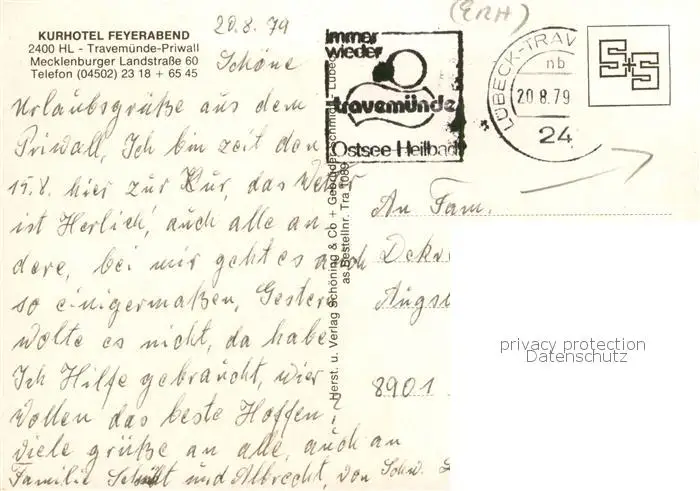 (ERH)
20.8.79
KURHOTEL FEYERABEND
2400 HL - Travemünde-Priwall
Mecklenburger Landstraße 60
Telefon (04502) 23 18 + 65 45
immer
wieder
travemünde
Ostsee Heilbad
LÜBECK-TRAV
nb
20.8.79
24
S+S
Schöne
Urlaubsgrüße aus dem
Priwall, Ich bin zeit den
15.8. hier zur Kur, das Weter
ist Herlich, auch alle an
dere, bei mir geht es auch
so einigermaßen, Gestern
wolte es nicht, da habe
Ich Hilfe gebraucht, wier
wollen das beste Hoffen,
viele grüße an alle, auch an
Familie und Albrecht, von Schw.
Herst. u. Verlag Schöning & Co + Gebrüder Schmidt, Lübeck
as Bestellnr. Tra 1089
An Fam.
Dek
Augs
8901
privacy protection
Datenschutz